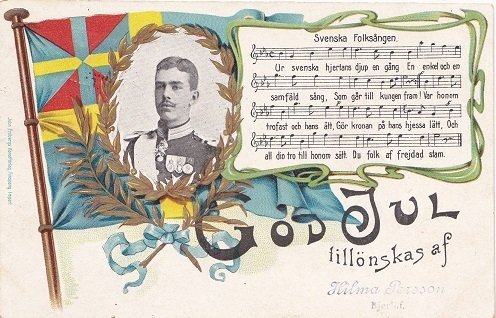 Svenska Folksången.
Ur svenska hjertans djup en gång En enkel och en
samfäld sång, Som går till kungen fram! Var honom
trofast och hans ätt, Gör kronan på hans hjessa lätt, Och
all din tro till honom sätt Du folk af frejdad stam.
GOD JUL
tillönskas af
Hilma Persson